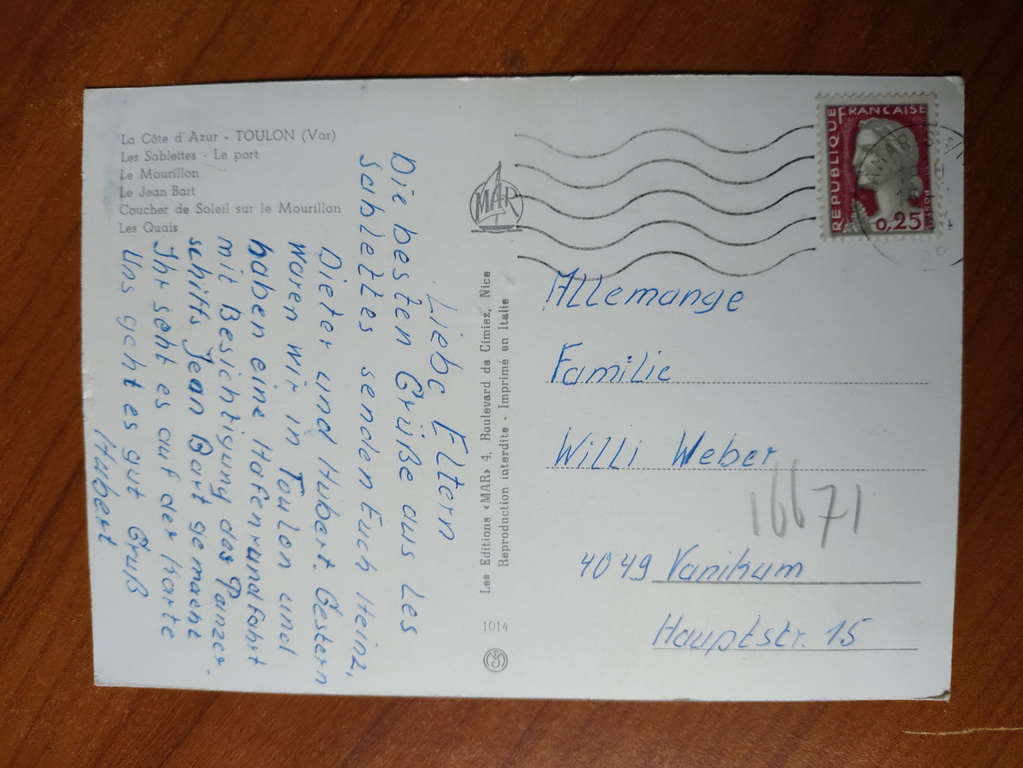 La Côte d'Azur - TOULON (Var)
Les Sablettes - Le port
Le Mourillon
Le Jean Bart
Coucher de Soleil sur le Mourillon
Les Quais
Liebe Eltern
Die besten Grüße aus Les
Sablettes senden Euch Heinz,
Dieter und Hubert. Gestern
waren wir in Toulon und
haben eine Hafenrundfahrt
mit Besichtigung des Panzer-
schiffs Jean Bart gemacht
Ihr seht es auf der Karte
Uns geht es gut Gruß
Hubert
MAR
Les Editions «MAR» 4, Boulevard de Cimiez, Nice
Reproduction interdite - Imprimé en Italie
1014
REPUBLIQUE FRANÇAISE
0,25
POSTES
Allemange
Familie
Willi Weber
16671
4049 Vanikum
Hauptstr. 15